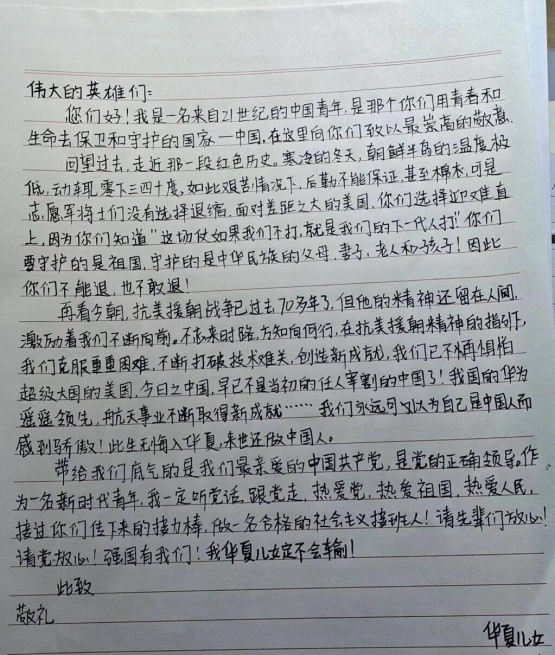 伟大的英雄们:
您们好!我是一名来自21世纪的中国青年,是那个你们用青春和
生命去保卫和守护的国家—中国,在这里向你们致以最崇高的敬意.
回望过去,走近那一段红色历史。寒冷的冬天,朝鲜半岛的温度极
低,动辄零下三四十度,如此艰苦情况下,后勤不能保证,甚至棉衣,可是
志愿军将士们没有选择退缩,面对差距之大的美国,你们选择迎难直
上,因为你们知道"这场仗如果我们不打,就是我们的下一代人打"你们
要守护的是祖国,守护的是中华民族的父母、妻子、老人和孩子!因此
你们不能退,也不敢退!
再看今朝,抗美援朝战争已过去70多年了,但他的精神还留在人间,
激励着我们不断向前。不忘来时路,方知向何行,在抗美援朝精神的指引下,
我们克服重重困难,不断打破技术难关,创造新成就,我们已不再惧怕
超级大国的美国,今日之中国,早已不是当初的任人宰割的中国了!我国的华为
遥遥领先,航天事业不断取得新成就……我们永远可以以为自己是中国人而
感到骄傲!此生无悔入华夏,来世还做中国人。
带给我们底气的是我们最亲爱的中国共产党,是党的正确领导。作
为一名新时代青年,我一定听党话,跟党走,热爱党,热爱祖国,热爱人民,
接过你们传下来的接力棒,做一名合格的社会主义接班人!请先辈们放心!
请党放心!强国有我们!我华夏儿女定不会车前!
此致
敬礼
华夏儿女